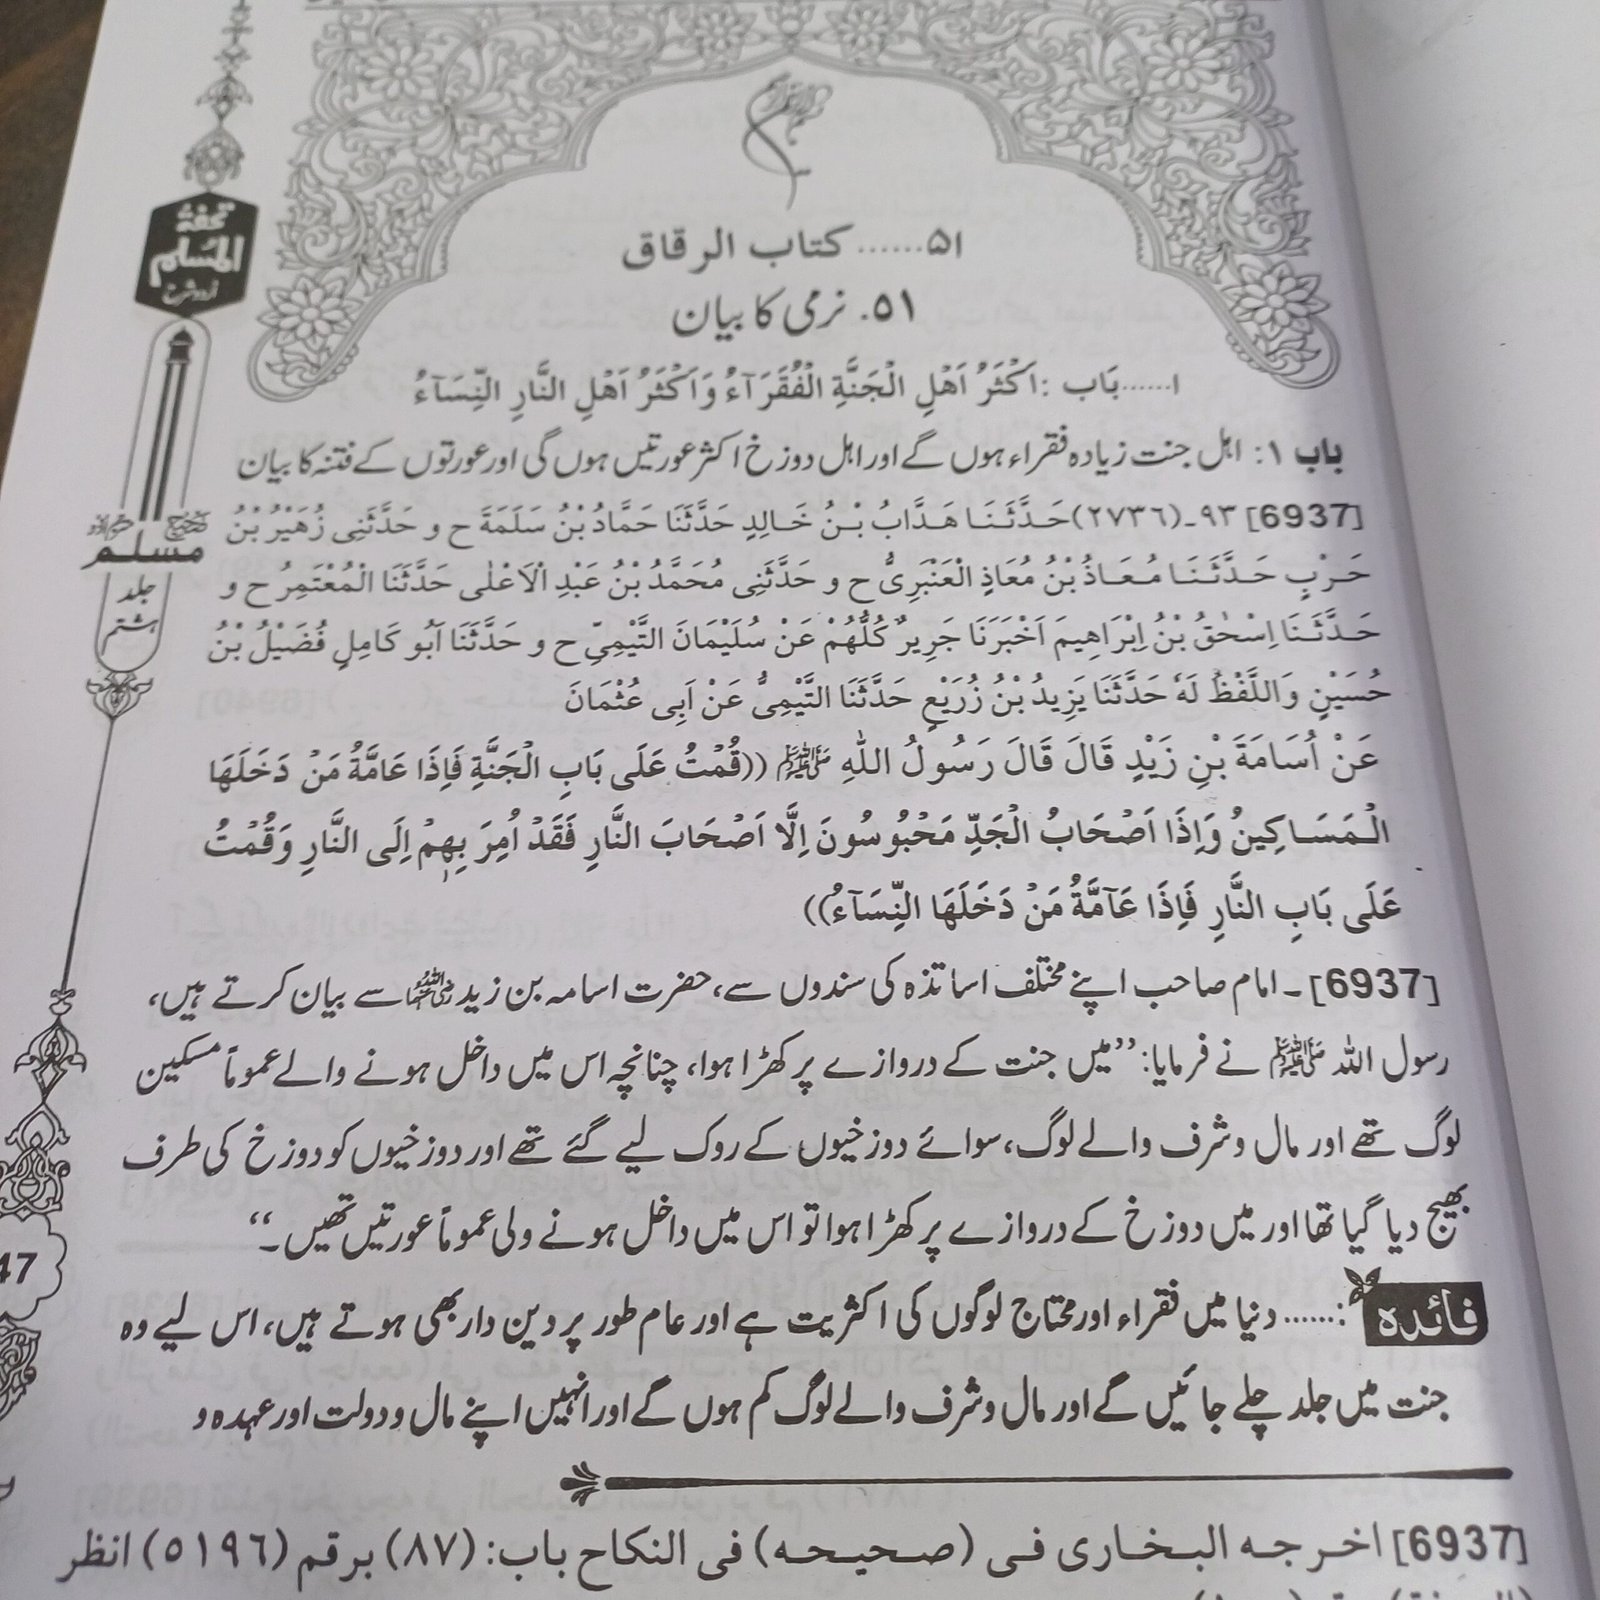 ۵۱...... کتاب الرقاق
۵۱. نرمی کا بیان
۱......بَاب :اَكْثَرُ اَهْلِ الْجَنَّةِ الْفُقَرَآءُ وَاَكْثَرُ اَهْلِ النَّارِ النِّسَآءُ
باب ۱: اہل جنت زیادہ فقراء ہوں گے اور اہل دوزخ اکثر عورتیں ہوں گی اور عورتوں کے فتنہ کا بیان
[6937] ۹۳۔(۲۷۳۶)حَدَّثَنَا هَدَّابُ بْنُ خَالِدٍ حَدَّثَنَا حَمَّادُ بْنُ سَلَمَةَ ح و حَدَّثَنِى زُهَيْرُ بْنُ
حَرْبٍ حَدَّثَنَا مُعَاذُ بْنُ مُعَاذٍ الْعَنْبَرِىُّ ح و حَدَّثَنِى مُحَمَّدُ بْنُ عَبْدِ الْاَعْلٰى حَدَّثَنَا الْمُعْتَمِرُ ح و
حَدَّثَنَا اِسْحٰقُ بْنُ اِبْرَاهِيمَ اَخْبَرَنَا جَرِيرٌ كُلُّهُمْ عَنْ سُلَيْمَانَ التَّيْمِىِّ ح و حَدَّثَنَا اَبُو كَامِلٍ فُضَيْلُ بْنُ
حُسَيْنٍ وَاللَّفْظُ لَهٗ حَدَّثَنَا يَزِيدُ بْنُ زُرَيْعٍ حَدَّثَنَا التَّيْمِىُّ عَنْ اَبِى عُثْمَانَ
عَنْ اُسَامَةَ بْنِ زَيْدٍ قَالَ قَالَ رَسُولُ اللّٰهِ ﷺ ((قُمْتُ عَلَى بَابِ الْجَنَّةِ فَاِذَا عَامَّةُ مَنْ دَخَلَهَا
الْمَسَاكِينُ وَاِذَا اَصْحَابُ الْجَدِّ مَحْبُوسُونَ اِلَّا اَصْحَابَ النَّارِ فَقَدْ اُمِرَ بِهِمْ اِلَى النَّارِ وَقُمْتُ
عَلَى بَابِ النَّارِ فَاِذَا عَآمَّةُ مَنْ دَخَلَهَا النِّسَآءُ))
[6937]۔ امام صاحب اپنے مختلف اساتذہ کی سندوں سے، حضرت اسامہ بن زید رضی اللہ عنہما سے بیان کرتے ہیں،
رسول اللہ ﷺ نے فرمایا: ’’میں جنت کے دروازے پر کھڑا ہوا، چنانچہ اس میں داخل ہونے والے عموماً مسکین
لوگ تھے اور مال و شرف والے لوگ، سوائے دوزخیوں کے روک لیے گئے تھے اور دوزخیوں کو دوزخ کی طرف
بھیج دیا گیا تھا اور میں دوزخ کے دروازے پر کھڑا ہوا تو اس میں داخل ہونے ولی عموماً عورتیں تھیں۔‘‘
فائدہ :...... دنیا میں فقراء اور محتاج لوگوں کی اکثریت ہے اور عام طور پر دین دار بھی ہوتے ہیں، اس لیے وہ
جنت میں جلد چلے جائیں گے اور مال و شرف والے لوگ کم ہوں گے اور انہیں اپنے مال و دولت اور عہدہ و
[6937] اخرجہ البخاری فی (صحیحہ) فی النکاح باب: (۸۷) برقم (۵۱۹٦) انظر
تحفۃ
المسلم
اردو شرح
صحیح
مسلم
جلد
ہشتم
47